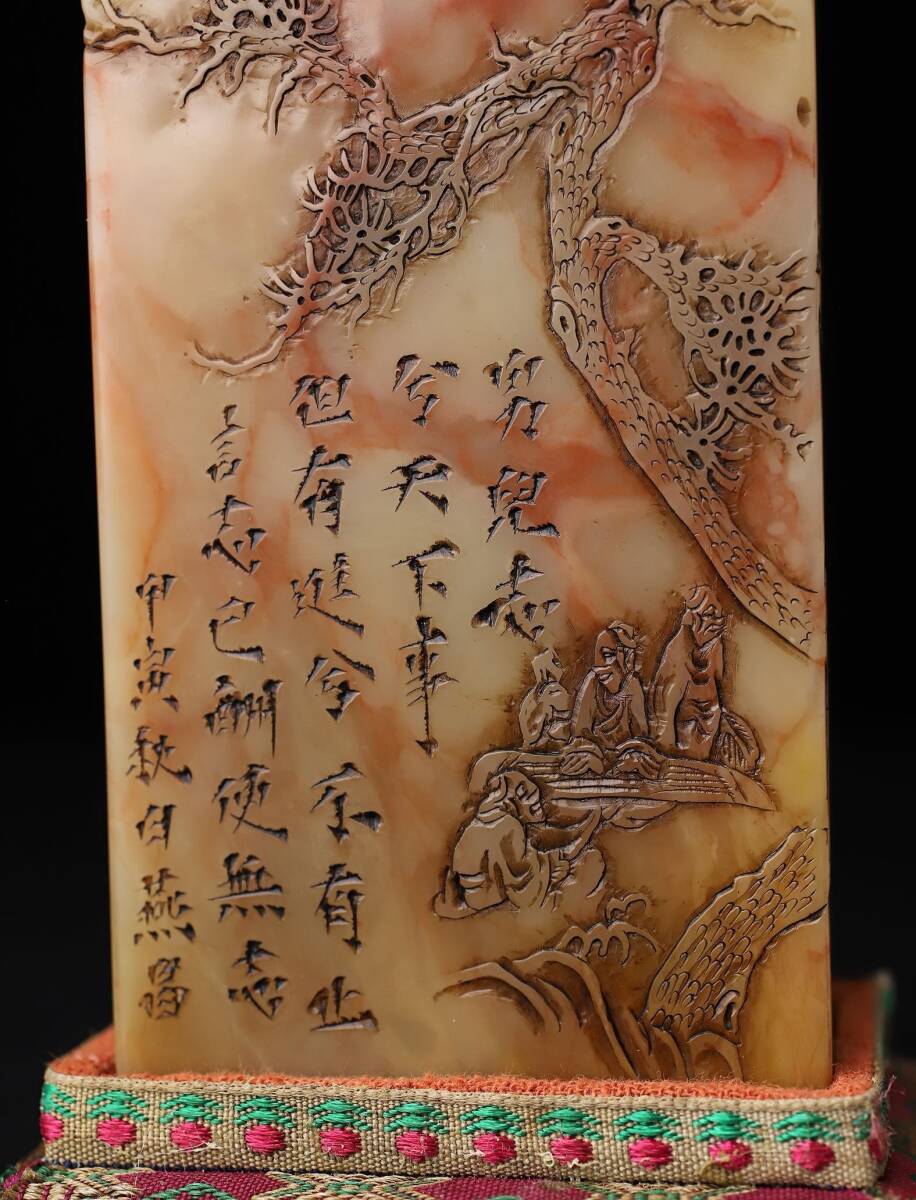 男兒志
兮天下事
但有進兮不有止
言志已酬便無志
甲寅秋白燕